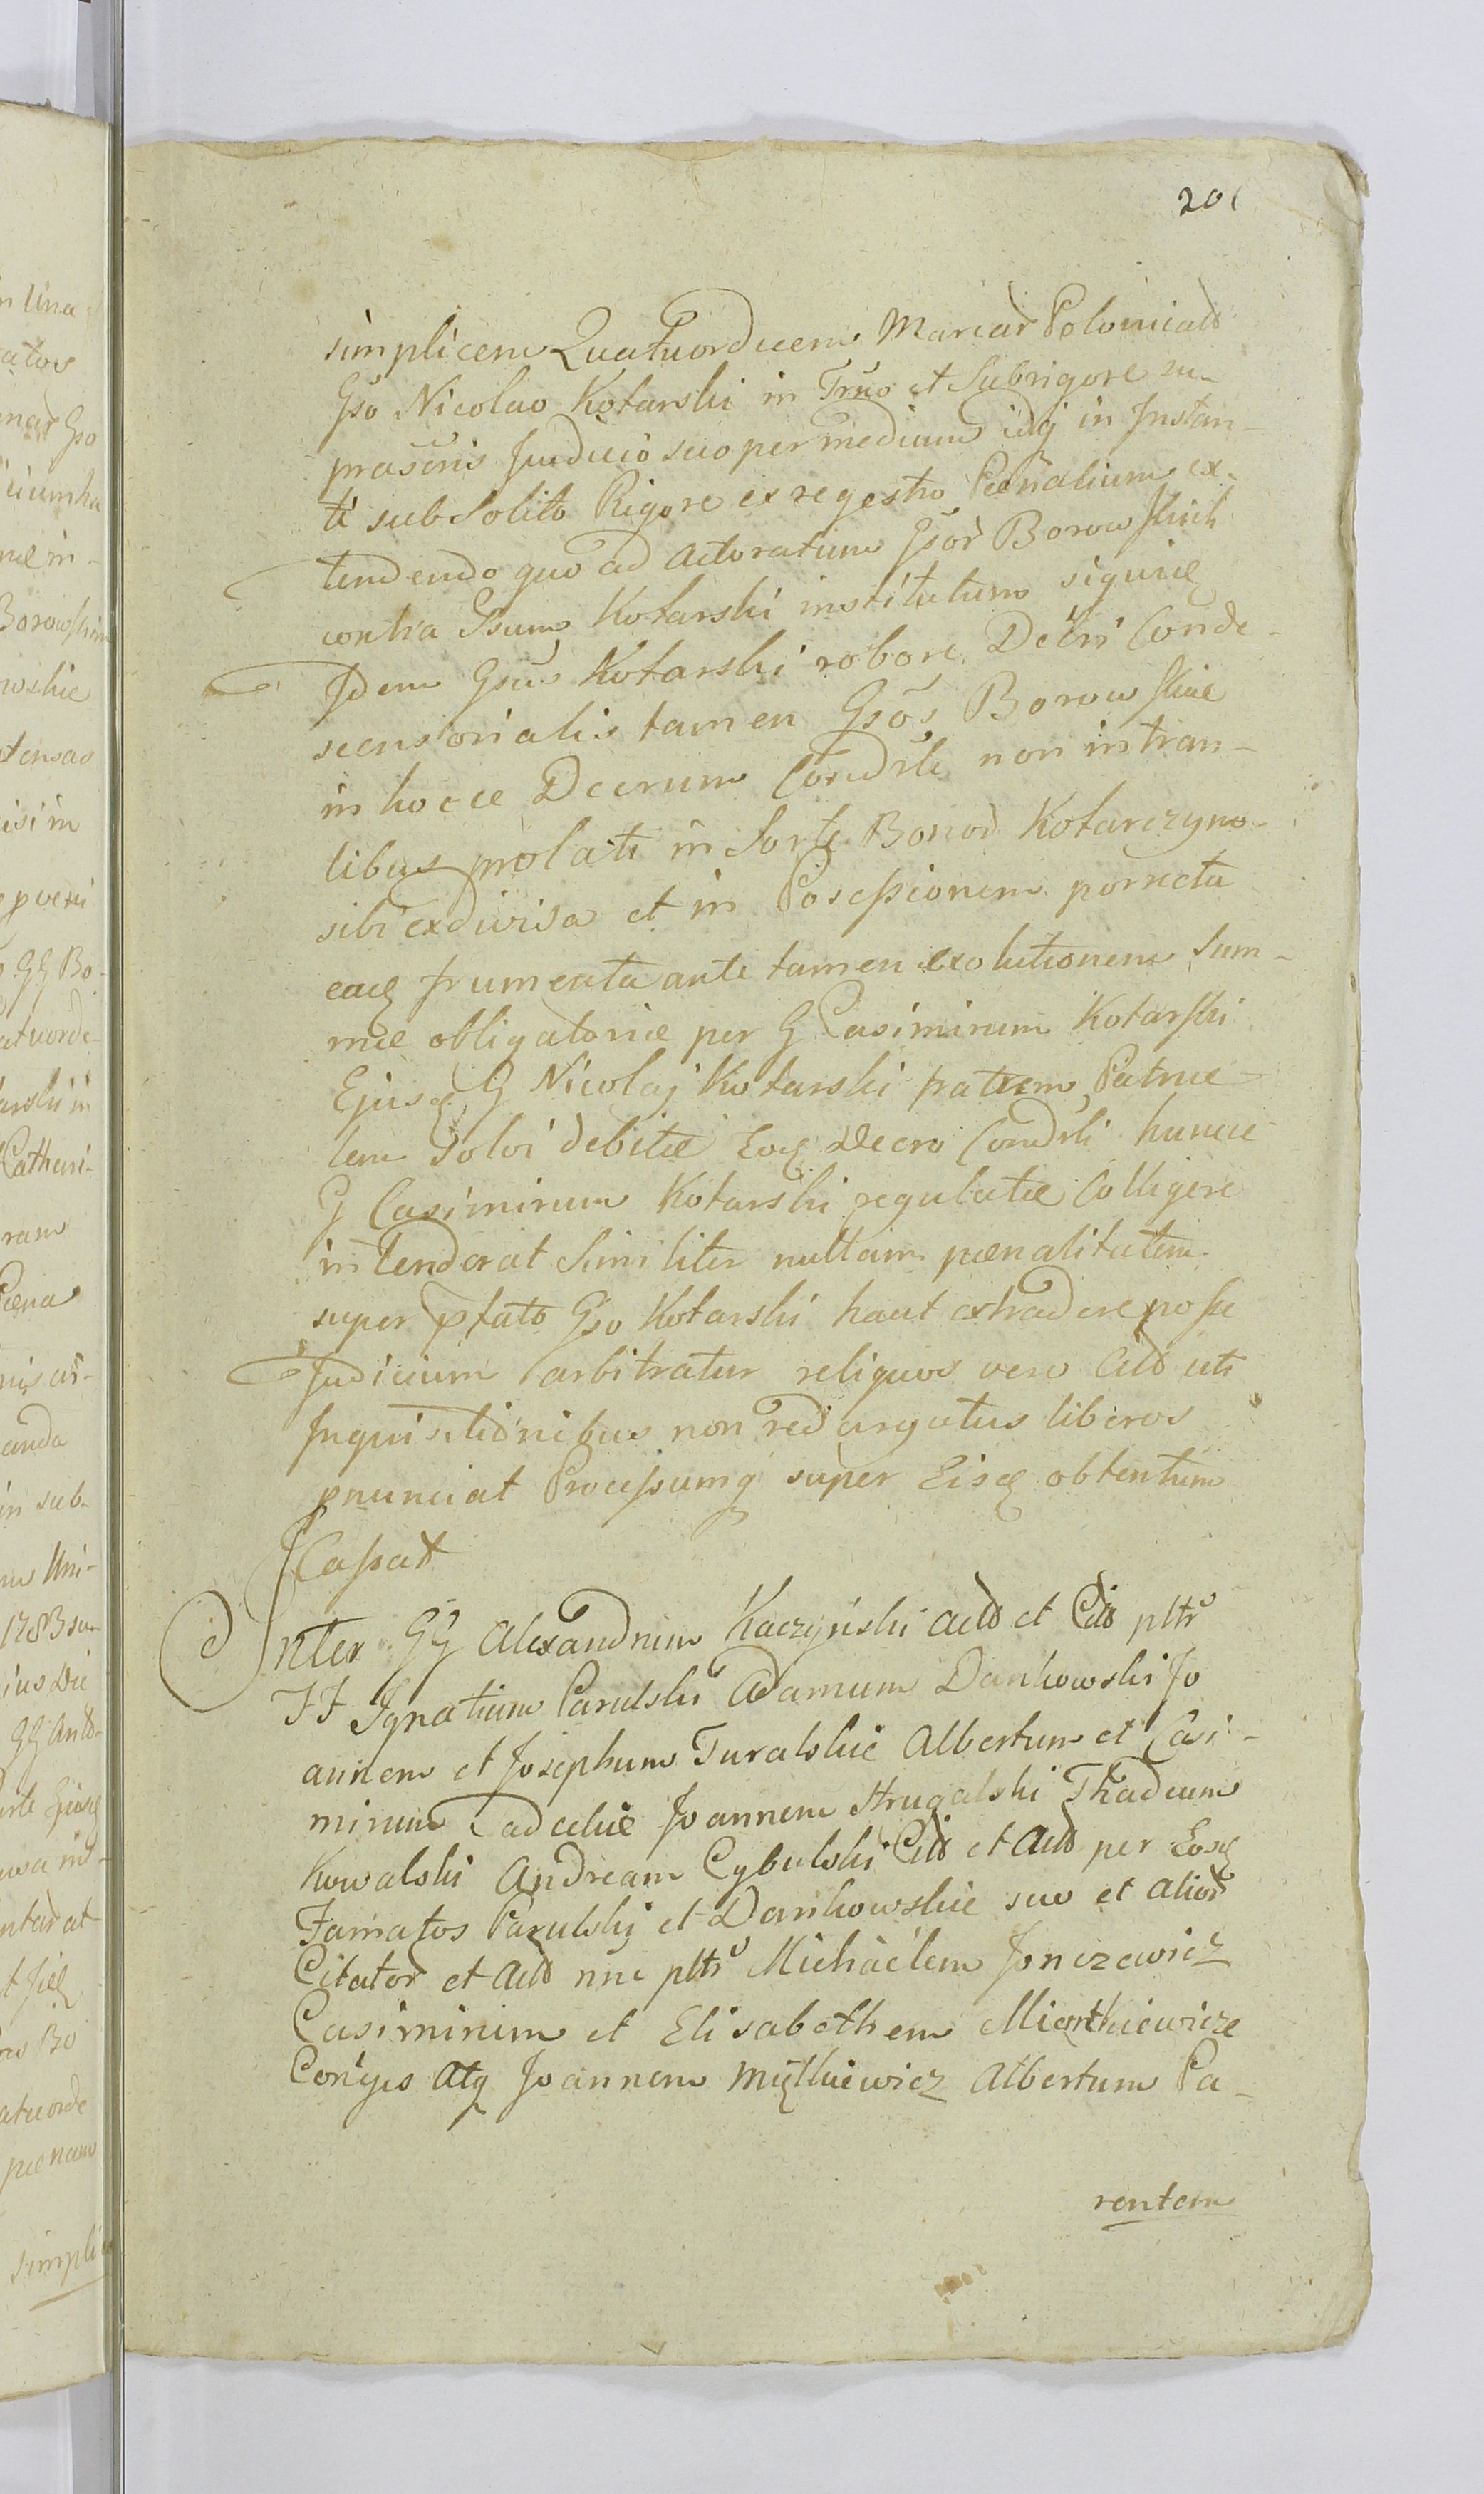 201
simplicem Quatuordecem Marcar Polonicals
Gso Nicolao Kotarski in Trno et Subrigore su-
prascris Judicio suo per medium idq in Instan-
ti sub Solito Rigore ex regestro Poenalium ex-
tendendo quo ad Actoratum Gsor Borowskich
contra Gsum Kotarski institutum siquid
Idem Gsus Kotarski robore Decri Conde-
scensorialis tamen Gsos Borowskie
in hocce Decrum Condrle non intran-
tibus prolati in Sorte Bonor Kotarczyno
sibi exdivisa et in Possessionem porrecta
eaq frumenta ante tamen exolutionem Sum-
mae obligatoriae per G Casimirum Kotarski
Ejusq G Nicolaj Kotarski fratrem Patrue-
lem Solvi debitae Eoq Decro Condrli huncce
G Casimirum Kotarski regulatae Colligere
intenderat Similiter nullam poenalitatem
super pfato Gso Kotarski haut extradere posse
Judicium arbitratur reliquos vero Citt uti
Inquisitionibus non redargutus liberos
pnunciat Processumq super Eisq obtentum
Cassat
Inter GG Alexandrum Kaczyński Actt et Citt pltr
FF Ignatium Parulski Adamum Dankowski Jo
annem et Josephum Turalskie Albertum et Casi-
mirum Ladeckie Joannem Strugalski Thadeum
Kowalski Andream Cybulski Citt et Actt per Eosq
Famatos Parulski et Dankowskie suo et alior
Citator et Actt nne pltr Michaelem Jonczewicz
Casimirum et Elisabethem Mientkiewicze
Conjges atq Joannem Miętkiewicz Albertum Pa-
rentem